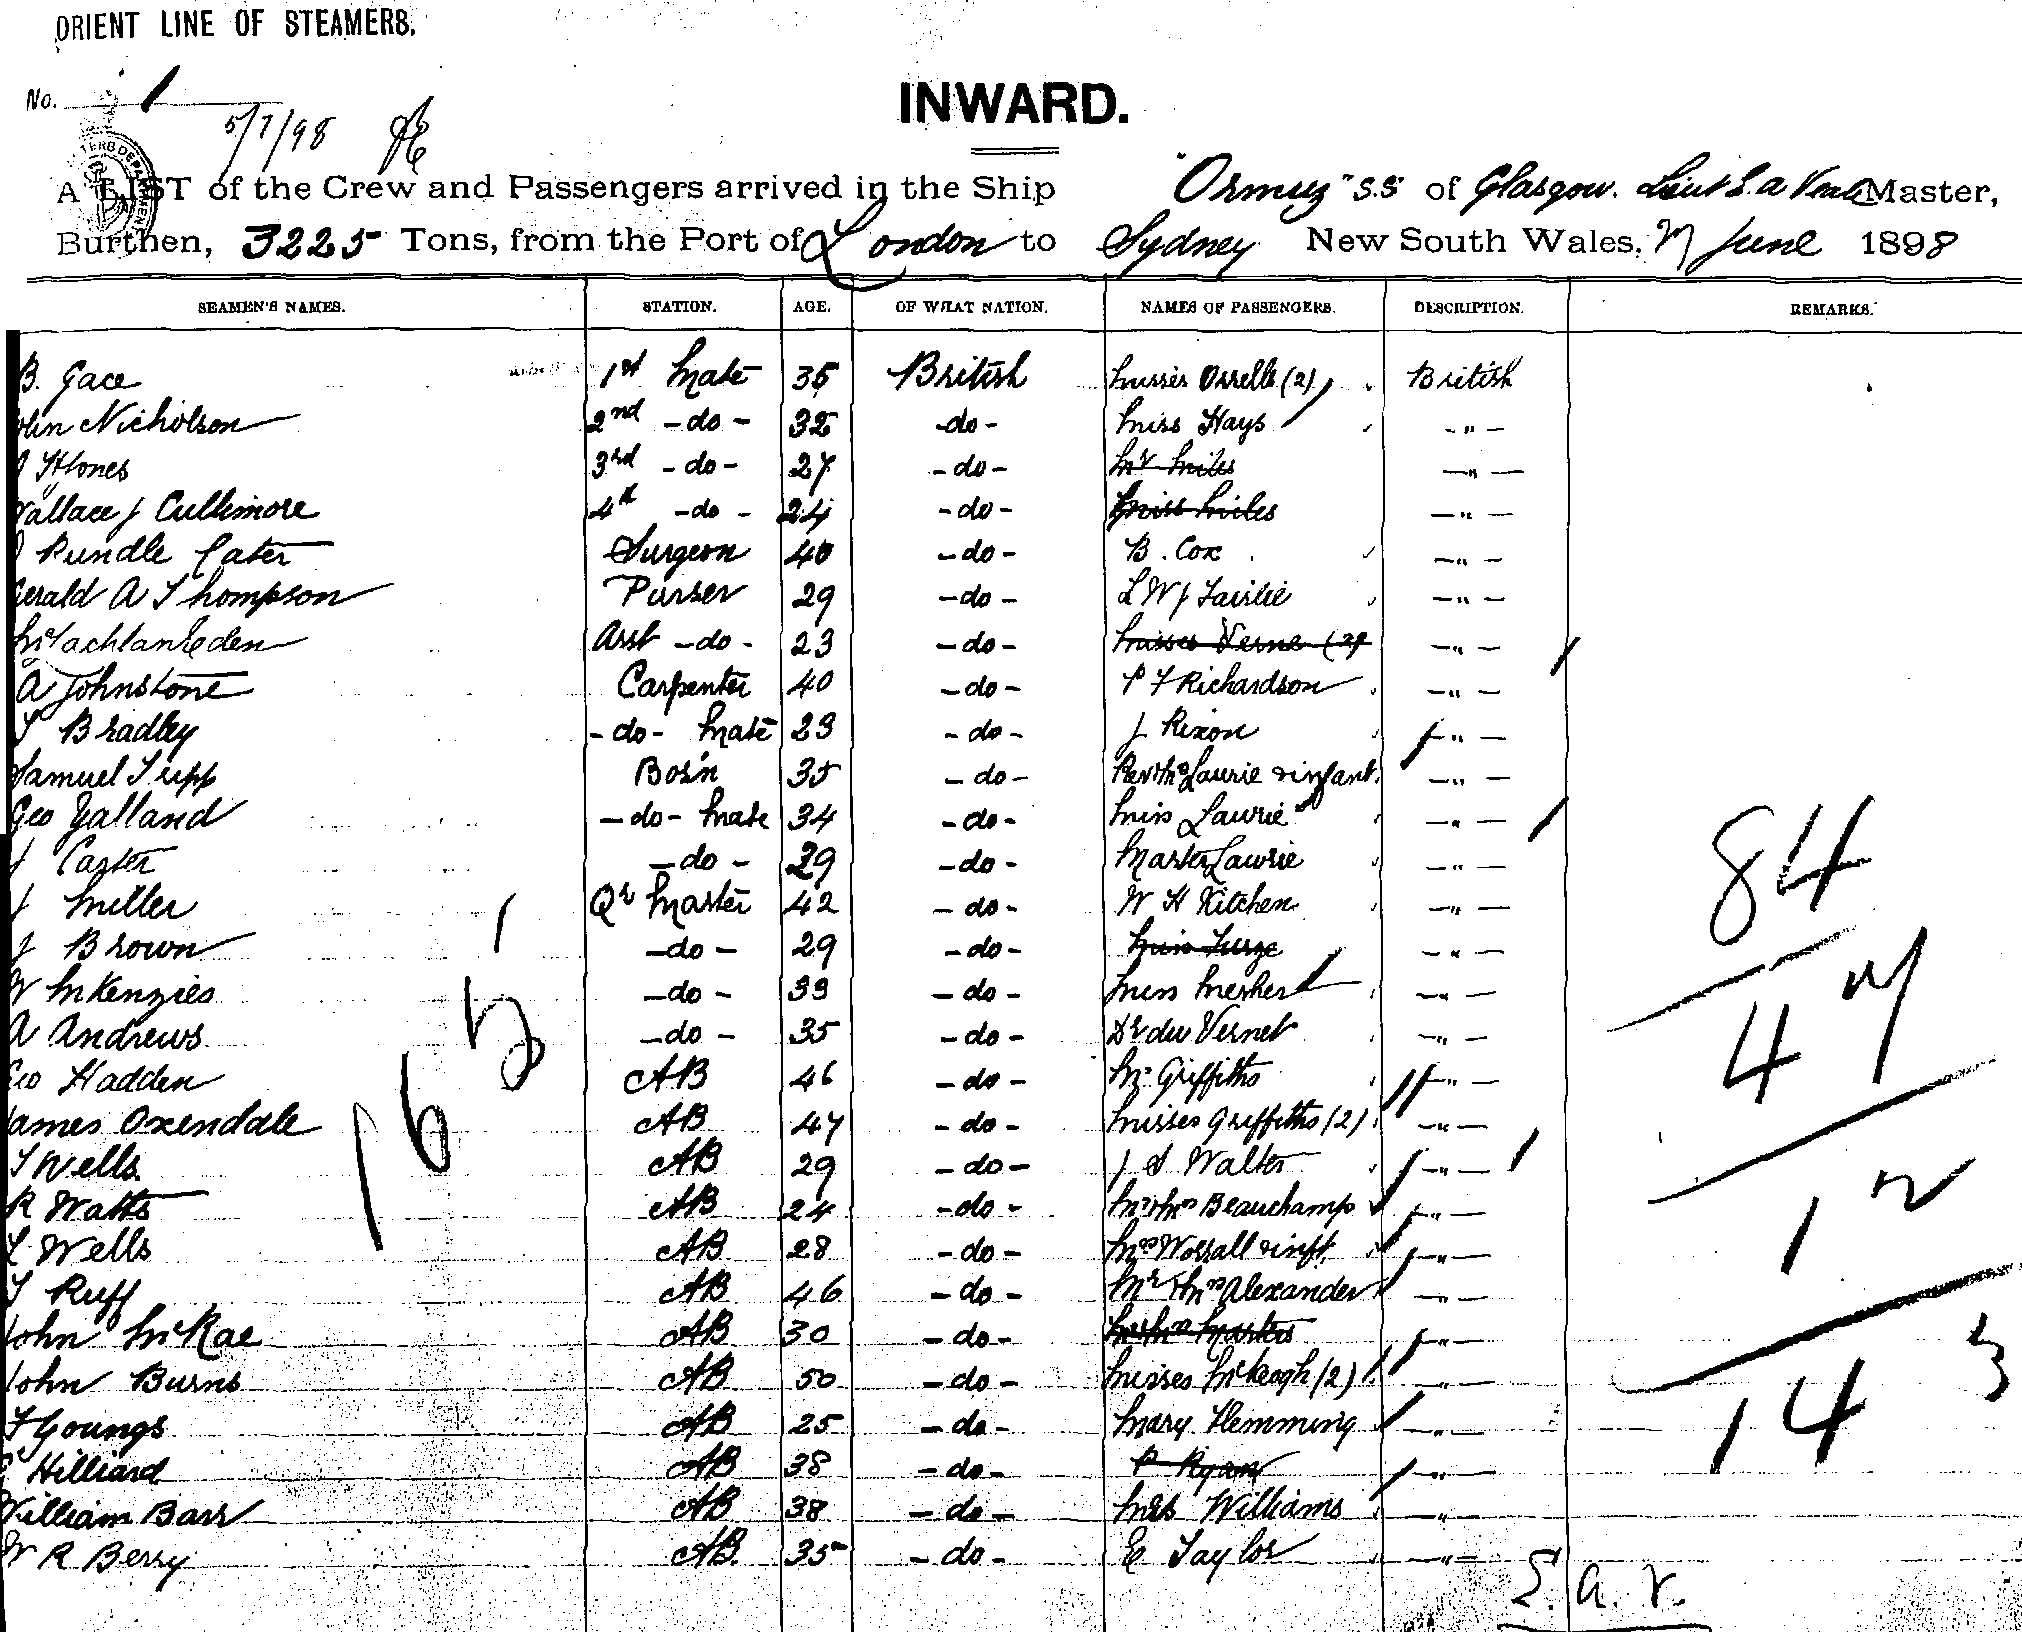 ORIENT LINE OF STEAMERS.
No. 1
5/7/98
INWARD.
A LIST of the Crew and Passengers arrived in the Ship "Ormuz" S.S of Glasgow. Lieut Master,
Burthen, 3225 Tons, from the Port of London to Sydney New South Wales, June 1898
SEAMEN'S NAMES. STATION. AGE. OF WHAT NATION. NAMES OF PASSENGERS. DESCRIPTION. REMARKS.
B. Gace 1st Mate 35 British Misses Orrelle (2) British
ohn Nicholson 2nd -do- 32 -do- Miss Hays -"-
H Jones 3rd -do- 27 -do- Mr Miles -"-
allace J Cullimore 4th -do- 24 -do- Miss Miles -"-
Rundle Cater Surgeon 40 -do- B. Cox -"-
erald A Thompson Purser 29 -do- L W J Fairlie -"-
McLachlan Eden Asst -do- 23 -do- Misses Verne (2) -"-
A Johnstone Carpenter 40 -do- P F Richardson -"-
T Bradley -do- Mate 23 -do- J Rixon -"-
Samuel Tripp Bos'n 35 -do- Rev Mrs Laurie & infant -"-
Geo Yalland -do- Mate 34 -do- Miss Laurie -"-
J Carter -do- 29 -do- Master Laurie -"-
J Miller Qr Master 42 -do- W H Kitchen -"-
J Brown -do- 29 -do- Miss Furze -"-
W McKenzies -do- 33 -do- Miss Mesher -"-
A Andrews -do- 35 -do- Dr du Vernet -"-
Geo Hadden AB 46 -do- Mr Griffiths -"-
James Oxendale AB 47 -do- Misses Griffiths (2) -"-
T Wells AB 29 -do- J S Walter -"-
R Watts AB 24 -do- Mr & Mrs Beauchamp -"-
L Wells AB 28 -do- Mrs Worrall & inft -"-
T Ruff AB 46 -do- Mr & Mrs Alexander -"-
John McRae AB 30 -do- Mr & Mrs Masters -"-
John Burns AB 50 -do- Misses McKeogh (2) -"-
F Youngs AB 25 -do- Mary Hemming -"-
Hilliard AB 38 -do- P Ryan -"-
William Barr AB 38 -do- Mrs Williams -"-
W R Berry AB. 35 -do- E Taylor -"-
165
84
47
12
143
E. a. V.